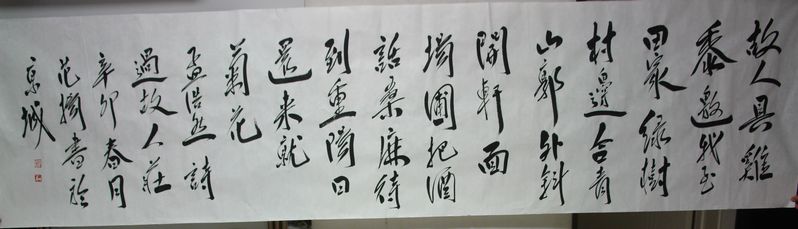 故人具雞
黍邀我至
田家綠樹
村邊合青
山郭外斜
開軒面
場圃把酒
話桑麻待
到重陽日
還來就
菊花
孟浩然詩
過故人莊
辛卯春月
范楓書於
京城